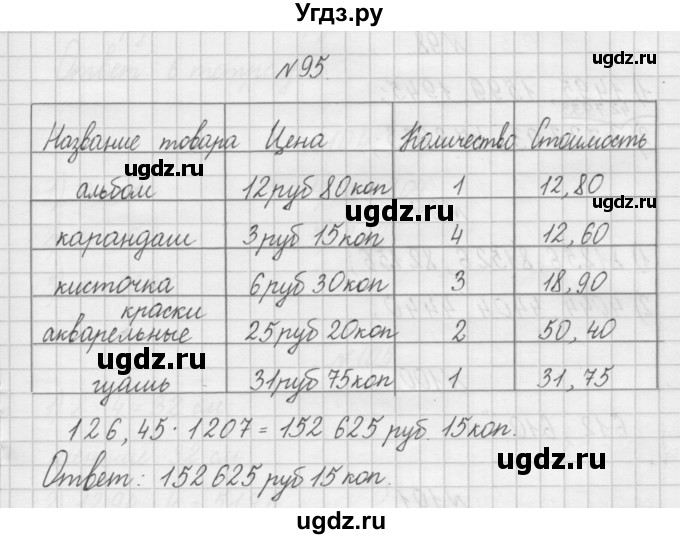 Угдз.ру
№95.
Название товара Цена Количество Стоимость
альбом 12 руб 80 коп 1 12,80
карандаш 3 руб 15 коп 4 12,60
кисточка 6 руб 30 коп 3 18,90
краски
акварельные 25 руб 20 коп 2 50,40
гуашь 31 руб 75 коп 1 31,75
126,45 · 1207 = 152 625 руб. 15 коп.
Ответ: 152 625 руб 15 коп.
ugdz.ru
ugdz.ru
ugdz.ru
ugdz.ru
ugdz.ru
ugdz.ru
ugdz.ru
ugdz.ru
ugdz.ru